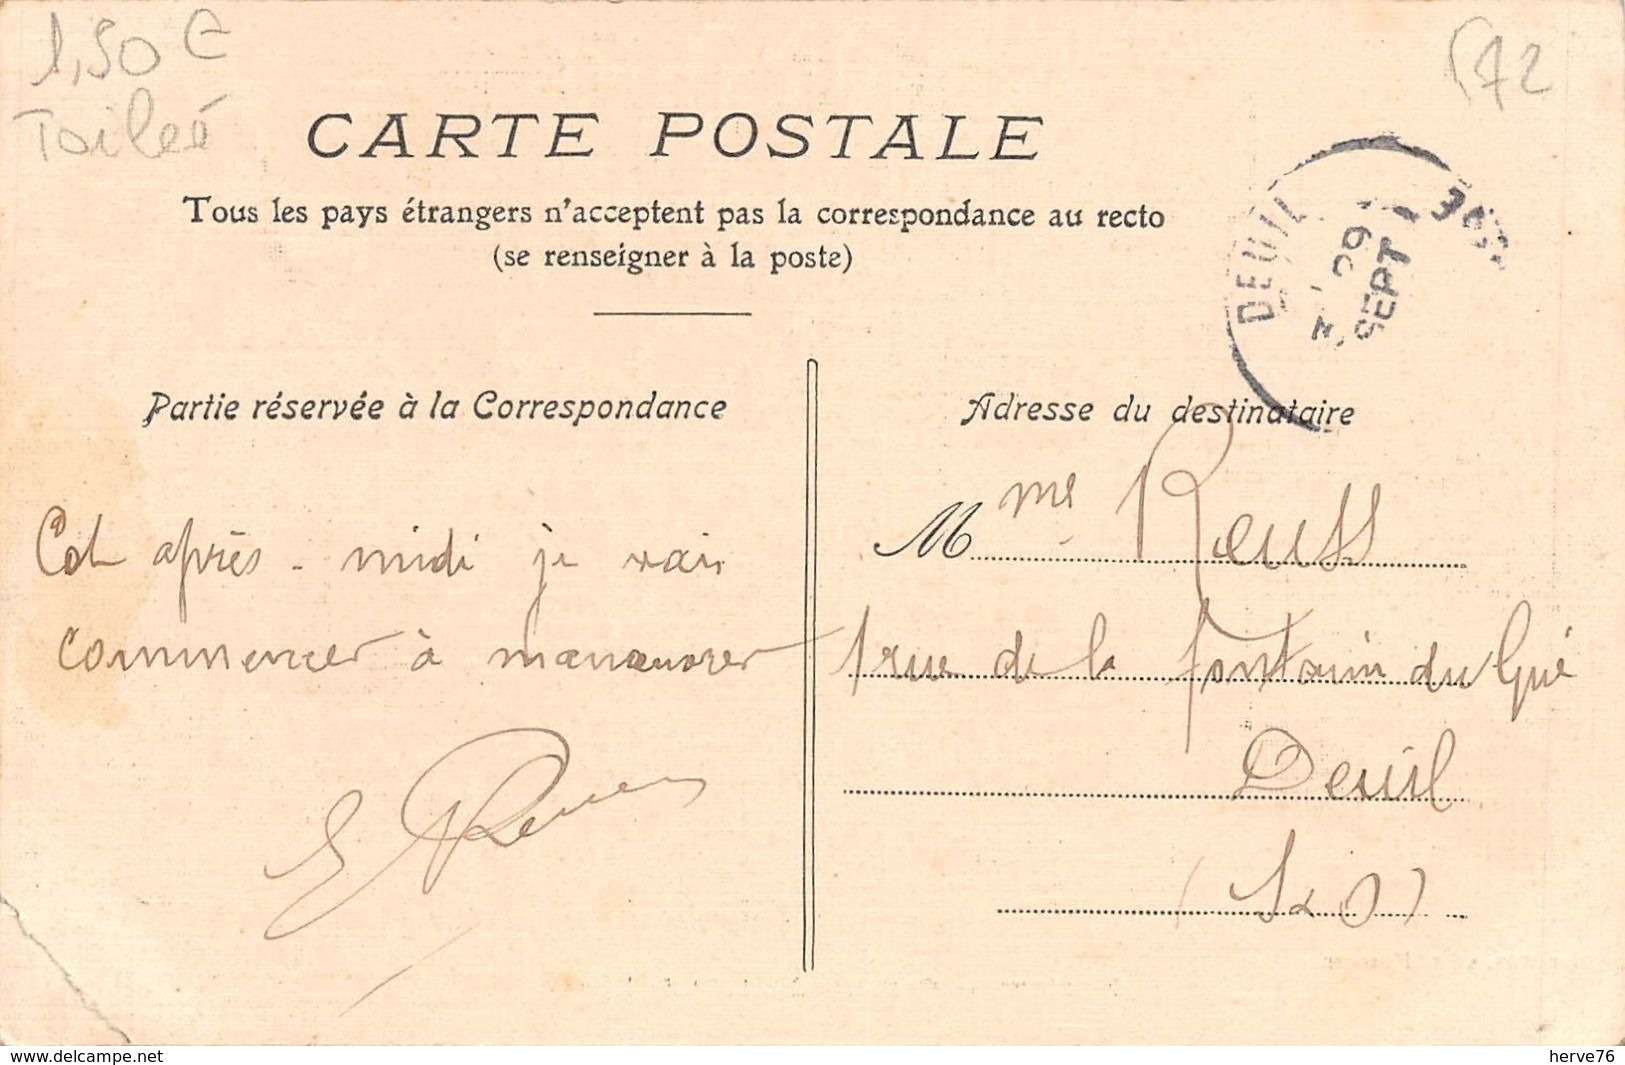 1,50 €
Toileé
(72
CARTE POSTALE
Tous les pays étrangers n'acceptent pas la correspondance au recto
(se renseigner à la poste)
DEUIL
29
SEPT
Partie réservée à la Correspondance
Adresse du destinataire
Cet après-midi je vais
commencer à manœuvrer
E
Mme Reuss
1 rue de la Fontaine du Gué
Deuil
(S & O)
www.delcampe.net
herve76